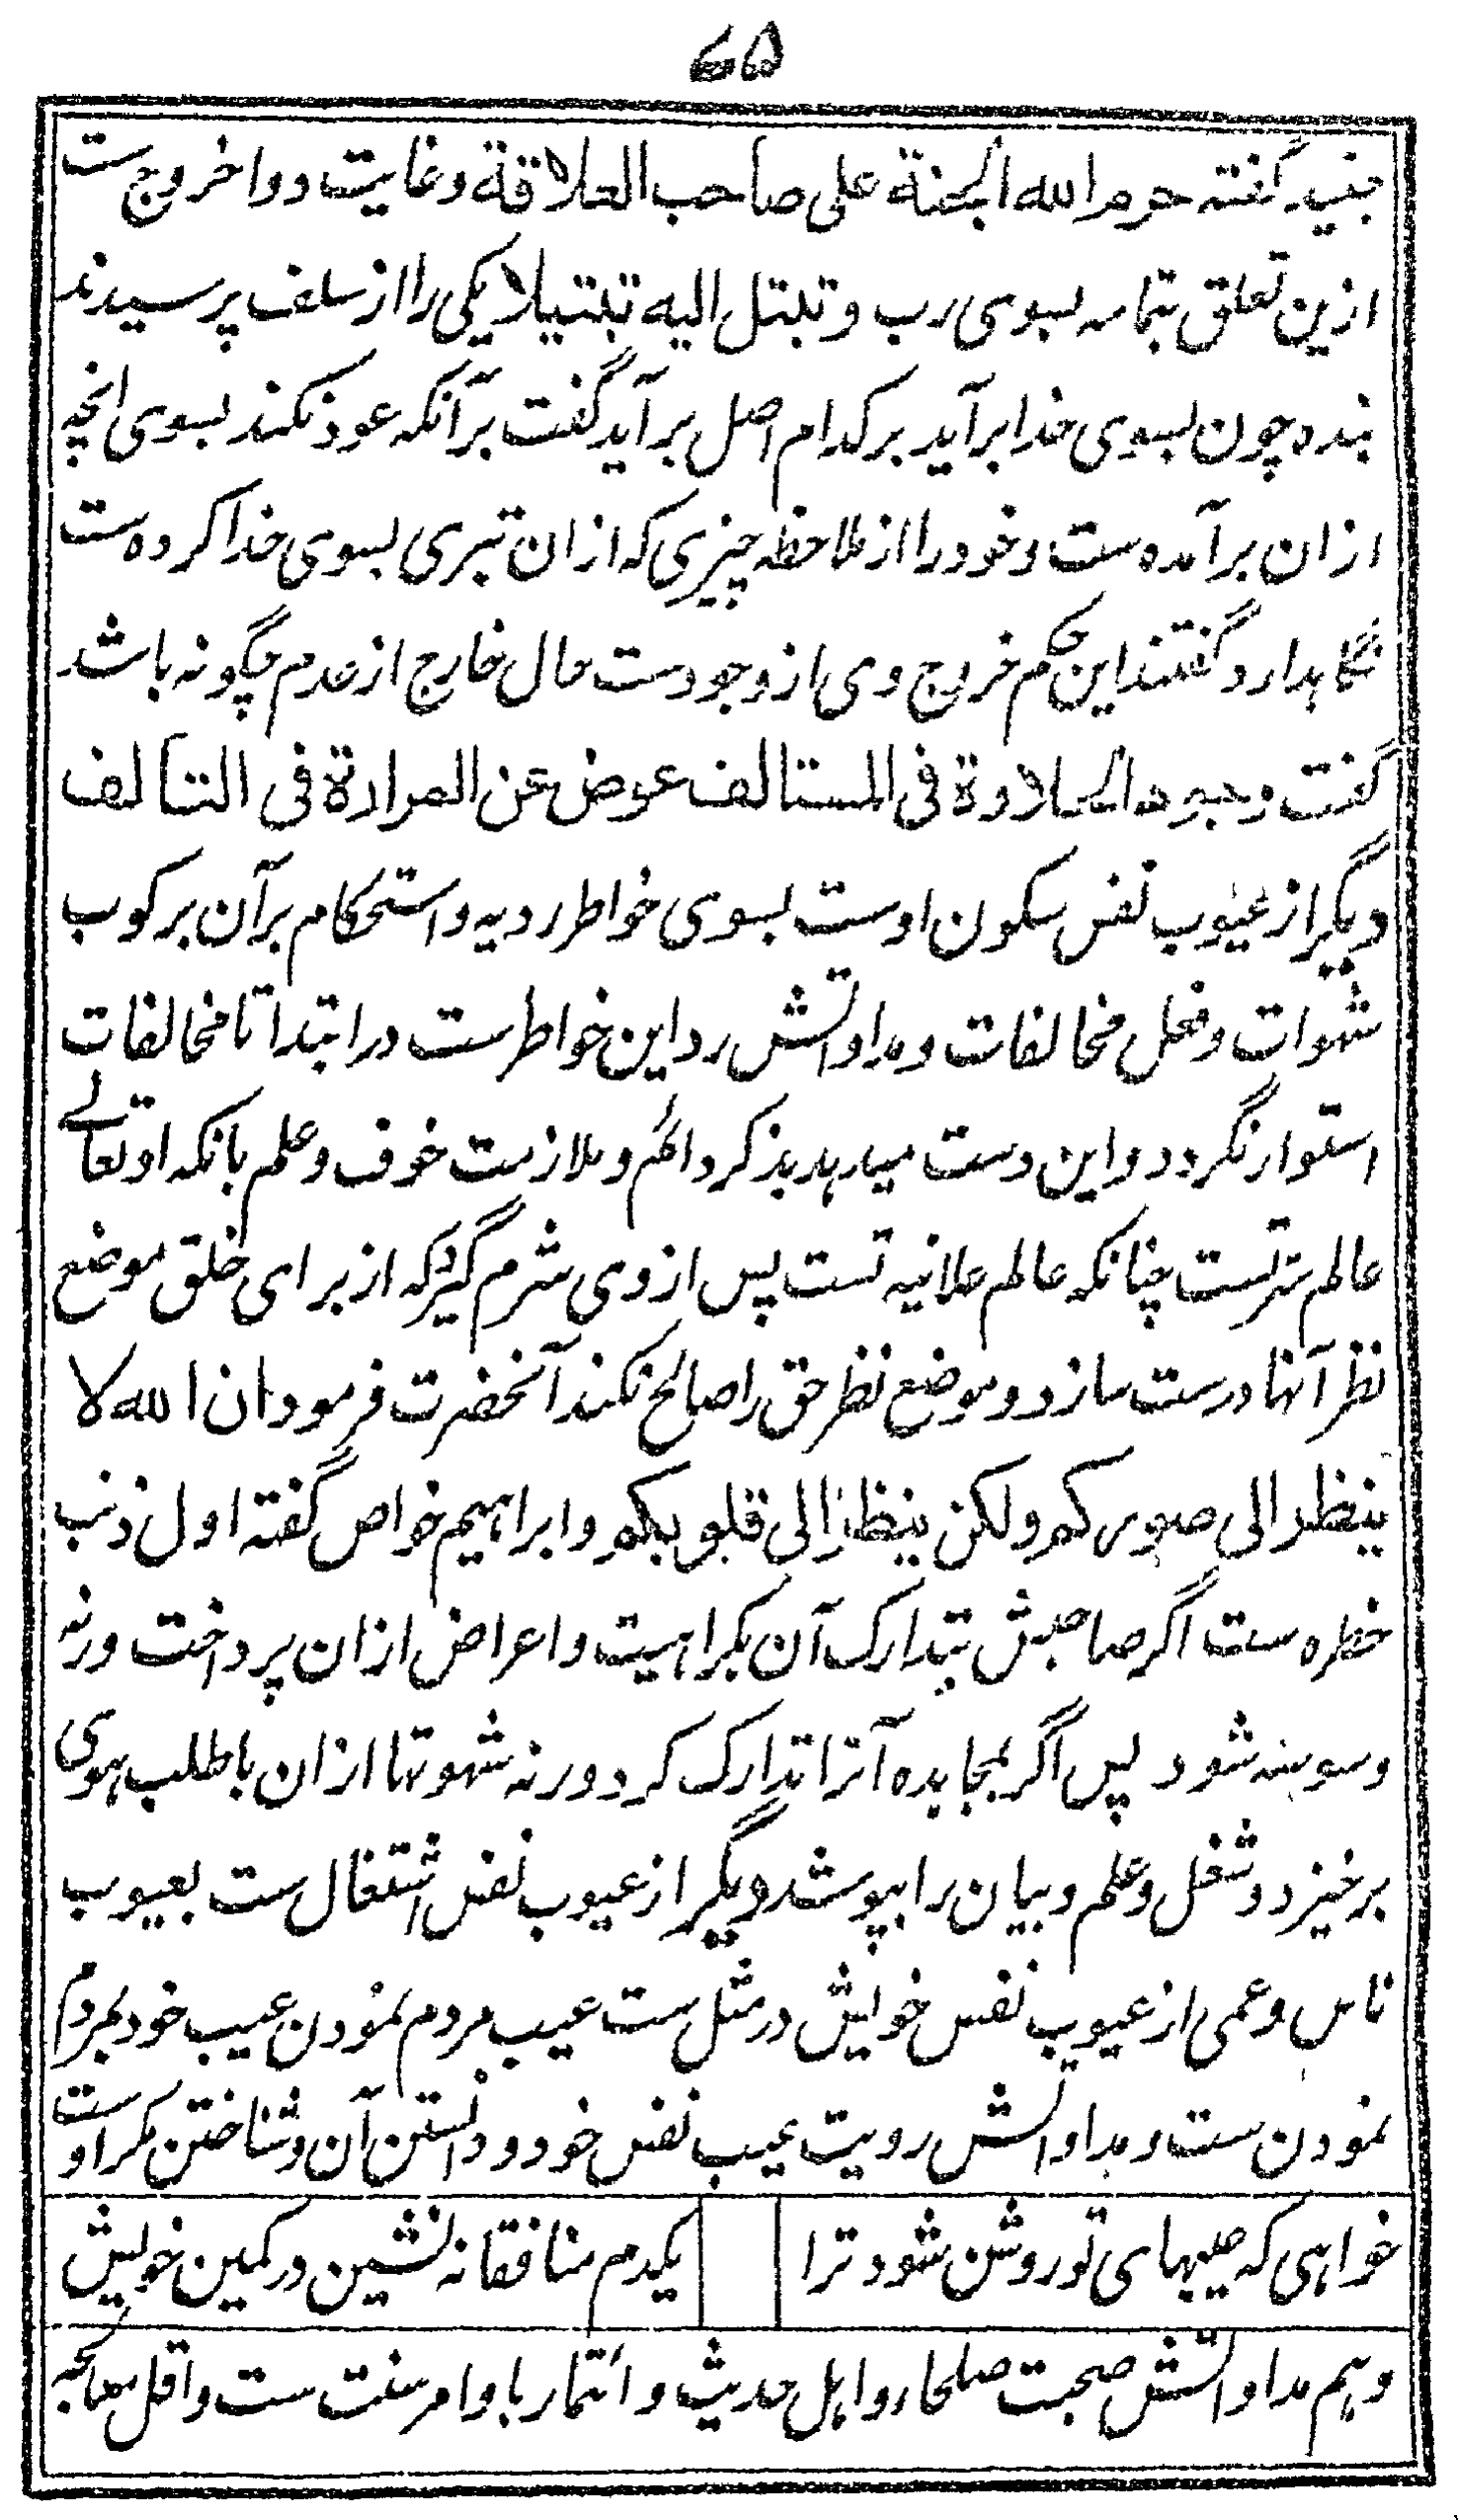 ۶۵
جنید گفته حرم الله الجنة علی صاحب العلاقة وغایت دوا خروج ست
ازین تعلق بتمامه بسوی رب وتبتل الیه تبتیلا یکی را از سلف پرسیدند
بنده چون بسوی خدا برآید بر کدام اصل برآید گفت برآنکه عود نکند بسوی انچه
ازان برآمده ست وخود را از ملاحظه چیزی که ازان تبری بسوی خدا کرده ست
نگاهدارد گفتند این حکم خروج وی از وجودست حال خارج از عدم چگونه باشد
گفت وجود الحلاوة فی المستالف عوض عن المرارة فی التالف
دیگر از عیوب نفس سکون اوست بسوی خواطر ردیه واستحکام برآن برکوب
شهوات وفعل مخالفات ومداواتش رد این خواطرست در ابتدا تا مخالفات
استوار نگردد واین دست میدهد بذکر دائم وملازمت خوف وعلم بانکه او تعالے
عالم سر تست چنانکه عالم علانیه تست پس از وی شرم گیر که از برای خلق موضع
نظر آنها درست سازد وموضع نظر حق را صالح نکند آنحضرت فرمود ان الله لا
ینظر الی صورکم ولکن ینظر الی قلوبکم وابراهیم خواص گفته اول ذنب
خطره ست اگر صاحبش بتدارک آن بکراهیت واعراض ازان پرداخت ورنه
وسوسه شود پس اگر بمجاهده آنرا تدارک کرد ورنه شهوتها ازان با طلب هوی
برخیزد وشغل وعلم وبیان را بپوشد دیگر از عیوب نفس اشتغال ست بعیوب
ناس وعمی از عیوب نفس خویش در مثل ست عیب مردم نمودن عیب خود بمردم
نمودن ست ومداواتش رویت عیب نفس خود ودانستن آن وشناختن مکر اوست
خواهی که عیبهای تو روشن شود ترا یکدم منافقانه نشین در کمین خویش
وهم مداواتش صحبت صلحا رواهل حدیث وائتمار باوامر سنت ست واقل معالجه